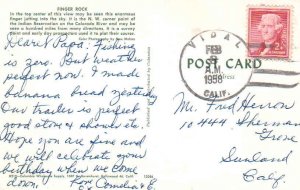 FINGER ROCK
In the top center of this view may be seen this enormous
finger jutting into the sky. It is the N. W. corner point of
the Indian Reservation on the Colorado River and may be
seen from two directions for many miles. It is a survey
point and early day prospectors used it to plot their claims.
Color Photography by Don McCoy
Dearest Papa: Fishing
is zero. But weather
perfect now. I made
banana bread yesterday
Our trailer is perfect
good stove & should its.
Hope you are fine and
we will celebrate your
birthday when we come
down! Roy & Cornelia E
VIDAL
FEB
7
A.M.
1958
CALIF.
2¢
POST CARD
Address
Mr. Fred Henson
10444 Sherman
Grove
Sunland
Calif.